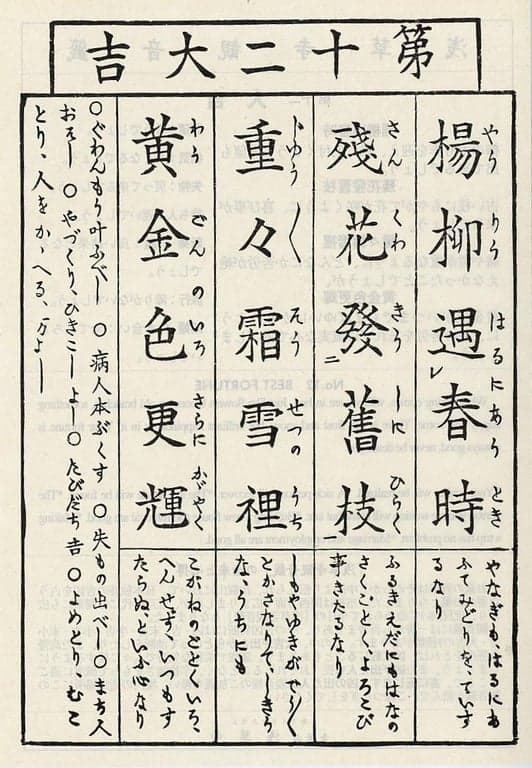 第十二大吉
楊柳遇春時
やうりう はるにあう とき
レ
やなぎも、はるにも
ふてみどりを、ていす
るなり
殘花發舊枝
さんくわ きうしにひらく
二
ふるきえだに、もはなの
さくこと、よろこび
事きたるなり
重々霜雪裡
ぢゆう〱 さうせつの うち
しもやゆきが
とかさなりて
うちにも
黄金色更輝
わうごんのいろ さらに かがやく
こがねのごとくいろ、
へんせず、
たらぬといふ心なり
〇ぐわんもう叶ふべし 〇病人本ぶくす 〇失もの出べし 〇まち人
おそし 〇やづくり、ひきこしよし 〇たびだち吉 〇よめとり、むこ
とり、人をかゝへる、万よし